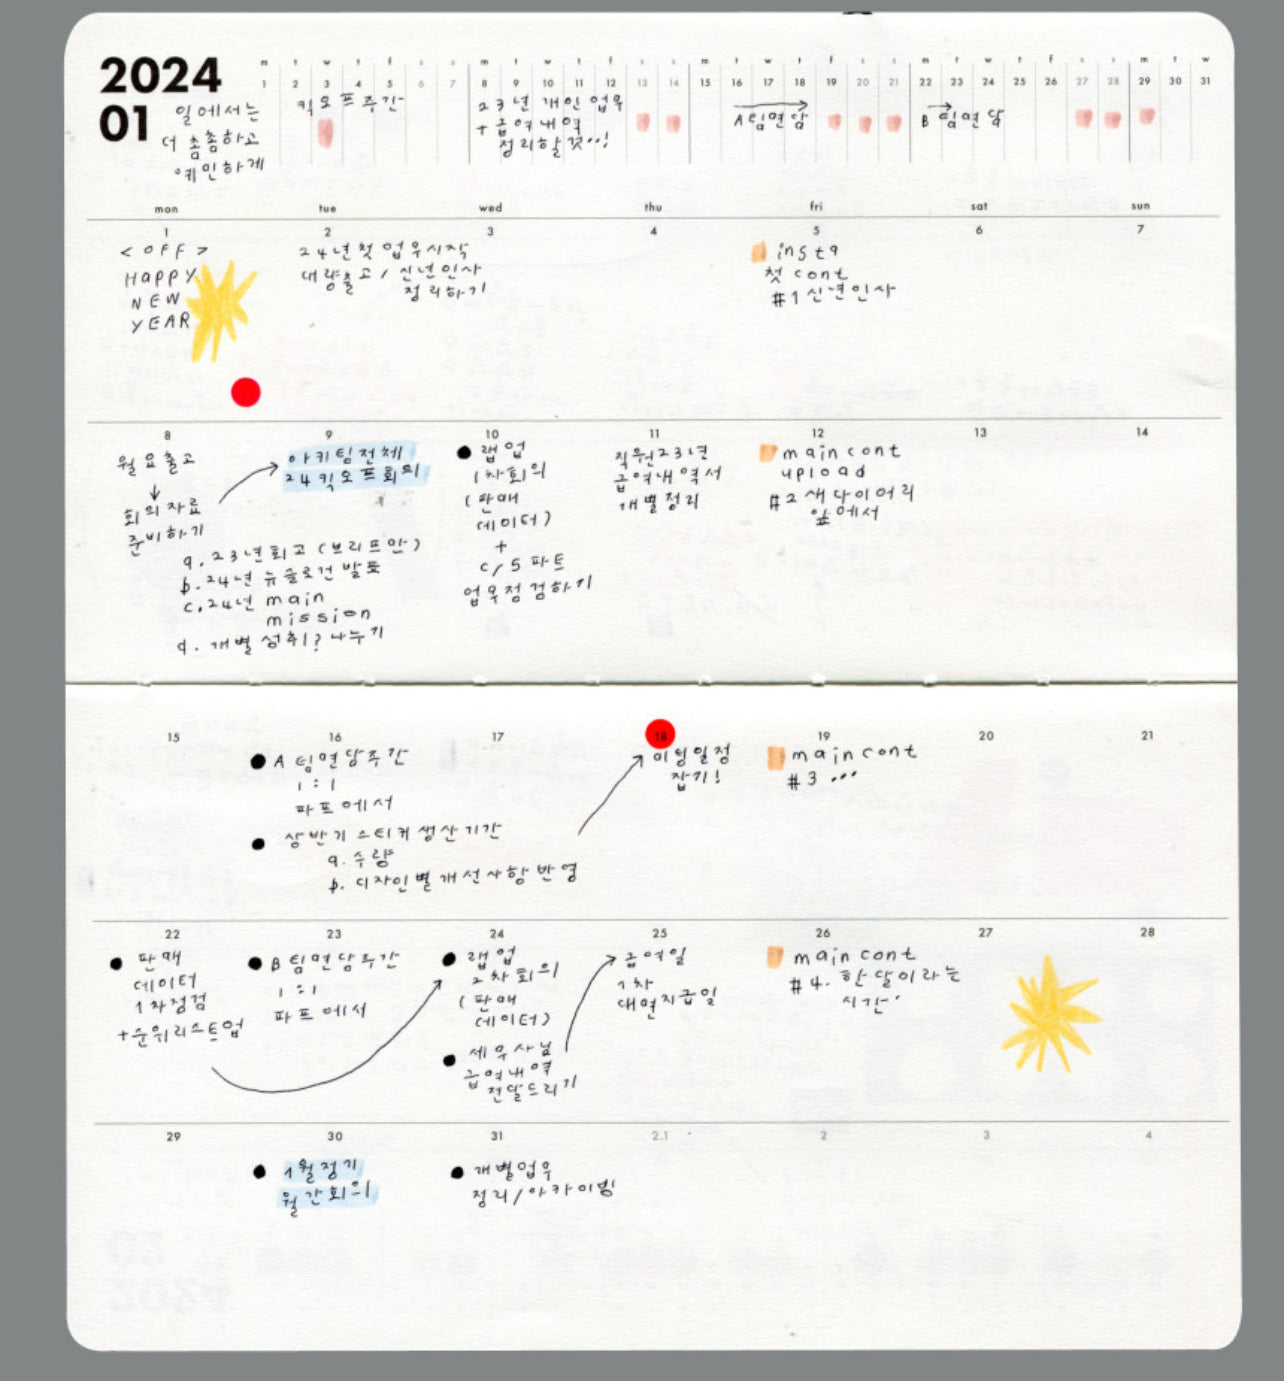 2024
01
m t w t f s s m t w t f s s m t w t f s s m t w t f s s m t w
1 2 3 4 5 6 7 8 9 10 11 12 13 14 15 16 17 18 19 20 21 22 23 24 25 26 27 28 29 30 31
일에서는
더 촘촘하고
예민하게
킥오프주간
23년 개인 업무
+ 급여내역
정리할것..!
A팀면담
B팀면담
mon tue wed thu fri sat sun
1 2 3 4 5 6 7
< OFF >
HAPPY
NEW
YEAR
24년첫업무시작
대량출고 / 신년인사
정리하기
insta
첫 cont
#1 신년인사
8 9 10 11 12 13 14
월요출고
↓
회의자료
준비하기
아키팀전체
24킥오프회의
a. 23년회고 (브리프만)
b. 24년 뉴슬로건 발표
c. 24년 main
mission
d. 개별성취? 나누기
랩업
1차회의
(판매
데이터)
+
c/s 파트
업무점검하기
직원23년
급여내역서
개별정리
main cont
upload
#2 새다이어리
앞에서
15 16 17 18 19 20 21
A팀면담주간
1:1
파프에서
상반기 스티커생산기간
a. 수량
b. 디자인별개선사항반영
미팅일정
잡기!
main cont
#3 ...
22 23 24 25 26 27 28
판매
데이터
1차점검
+순위리스트업
B팀면담주간
1:1
파프에서
랩업
2차회의
(판매
데이터)
세무사님
급여내역
전달드리기
급여일
1차
대면지급일
main cont
#4. 한달이라는
시간
29 30 31 2.1 2 3 4
1월정기
월간회의
개별업무
정리/아카이빙